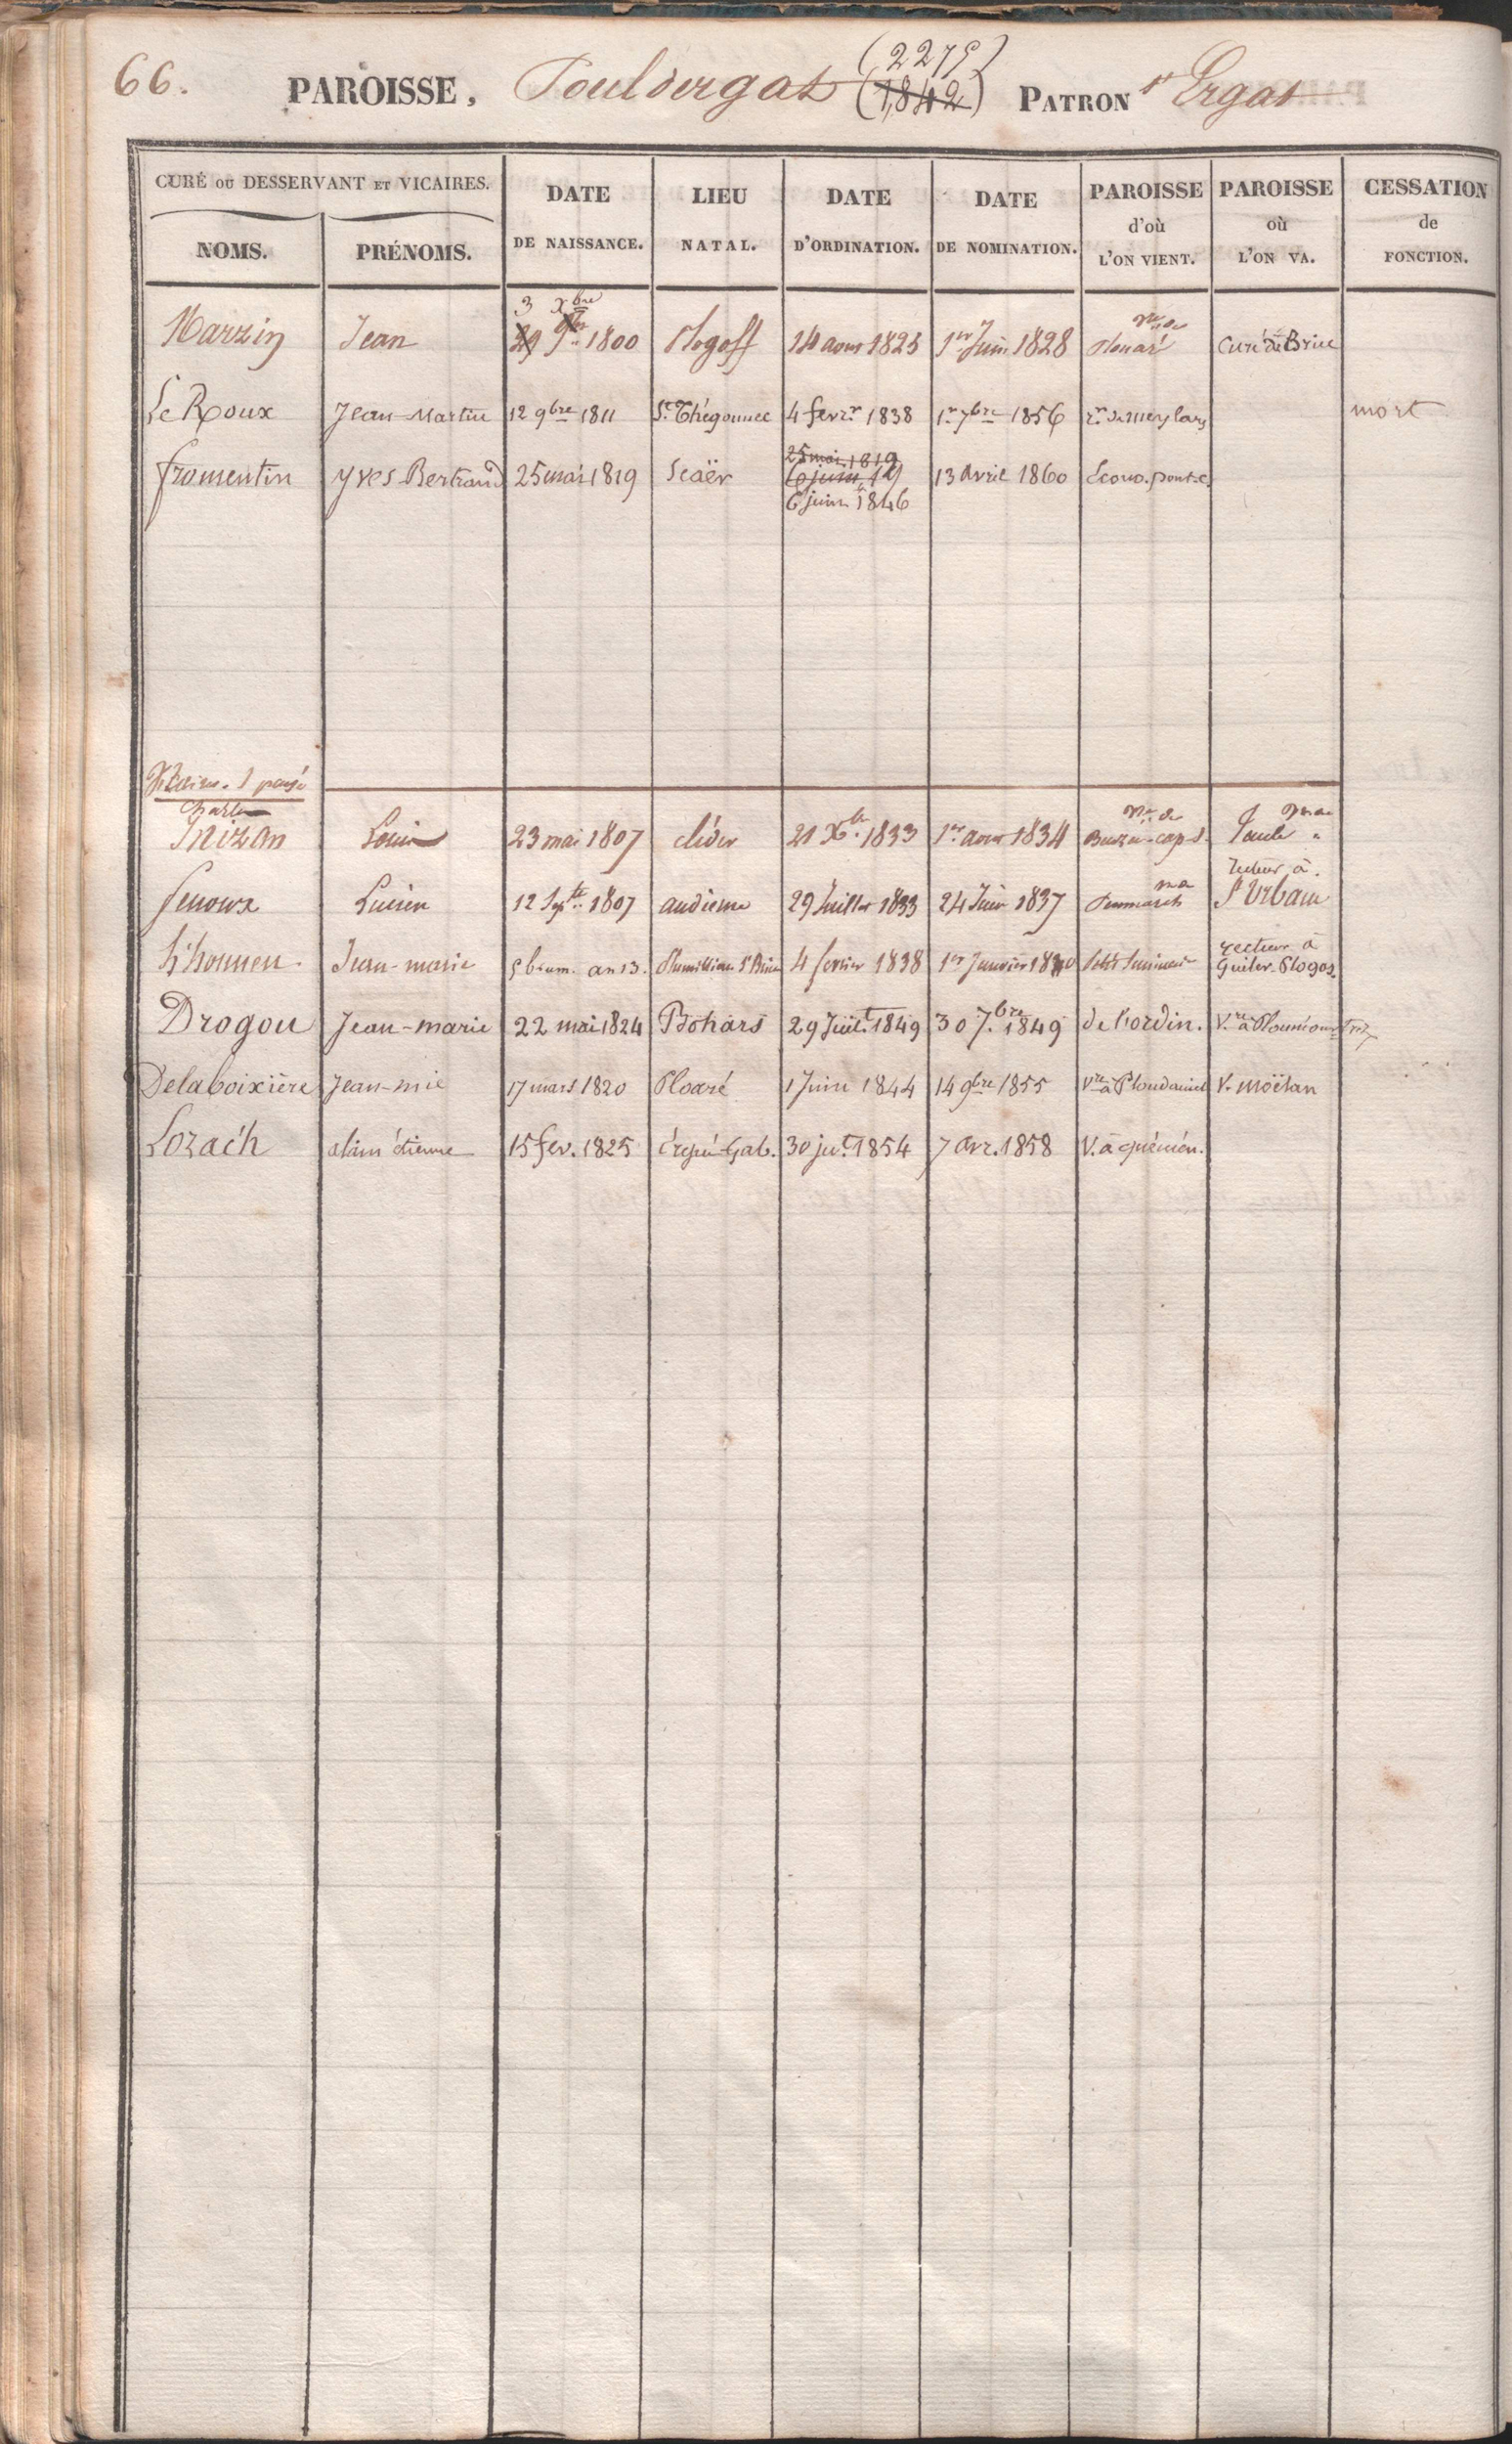 66.
PAROISSE, Pouldergat (2275) (1,842) PATRON St Ergat
CURÉ OU DESSERVANT ET VICAIRES.
NOMS. PRÉNOMS. DATE DE NAISSANCE. LIEU NATAL. DATE D'ORDINATION. DATE DE NOMINATION. PAROISSE d'où L'ON VIENT. PAROISSE où L'ON VA. CESSATION de FONCTION.
3 Xbre
Marzin Jean 29 9bre 1800 Plogoff 14 aout 1825 1er Juin 1828 vre de Plouaré Curé de Briec
Le Roux Jean-Martin 12 9bre 1811 St. Thégonnec 4 fevr. 1838 1r. 7bre 1856 rr. de Meylars mort
25 mai 1819
fromentin Yves-Bertrand 25 mai 1819 Scaër 6 juin 19 13 avril 1860 Econo. pont-c.
6 juin 1846
Vicaires. 1 payé
Charles
Inizan Louis 23 mai 1807 cléder 21 Xbre 1833 1er aout 1834 vre de Beuzec-cap-s. Taulé
fenoux Lucien 12 Septbre 1807 audierne 29 Juillet 1833 24 Juin 1837 Penmarch recteur à St Urbain
L'honnen Jean-marie 5 brum. an 13. 4 fevrier 1838 1er Janvier 1840 petit Seminaire recteur à Guiler-Plogas.
Drogou Jean-marie 22 mai 1824 Bohars 29 Juilt. 1849 30 7bre. 1849 de l'ordin. V.re à Plounéourtrez
Delaboixière Jean-mie 17 mars 1820 Ploaré 1 Juin 1844 14 9bre 1855 Vre à Ploudaniel V. Moëlan
Lozac'h alain étienne 15 fev. 1825 érgué-Gab. 30 jut. 1854 7 avr. 1858 V. à quémén.